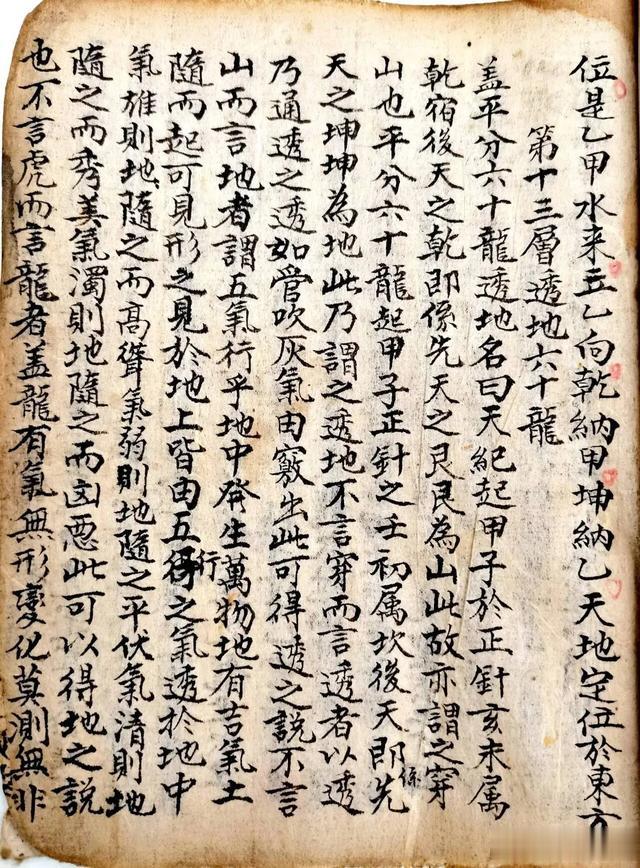 位是乙甲水来立乙向乾納甲坤納乙天地定位於東方
第十三層透地六十龍
盖平分六十龍透地名曰天紀起甲子於正針亥未属
乾宿後天之乾即係先天之艮艮為山此故亦謂之穿
山也平分六十龍起甲子正針之壬初属坎後天即係先
天之坤坤為地此乃謂之透地不言穿而言透者以透
乃通透之透如管吹灰氣由竅出此可得透之說不言
山而言地者謂五氣行乎地中發生萬物地有吉氣土
隨而起可見形之見於地上皆由五行之氣透於地中
氣雄則地隨之而高聳氣弱則地隨之平伏氣清則地
隨之而秀美氣濁則地隨之而凶惡此可以得地之說
也不言虎而言龍者盖龍有氣無形變化莫測無非